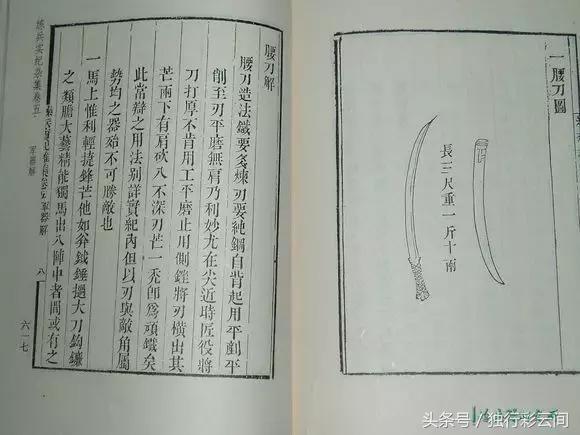 一腰刀圖
長三尺重一斤十兩
腰刀解
腰刀造法鐵要多煉刃要純鋼自背起用平剷平
削至刃平磨無肩乃利妙尤在尖近時匠役將
刀打厚不肯用工平磨止用側銼將刃橫出其
芒兩下有肩砍入不深刃芒一禿即爲頑鐵矣
此當辯之用法别詳實紀內但以刃與敵角屬
勢均之器殆不可勝敵也
一馬上惟利輕捷鋒芒他如斧鉞錘撾大刀鈎鐮
之類膽大藝精能獨馬出入陣中者間或有之
軍器解 八
练兵实纪杂集卷五 军器解 六一七
头条号 / 独行彩云间